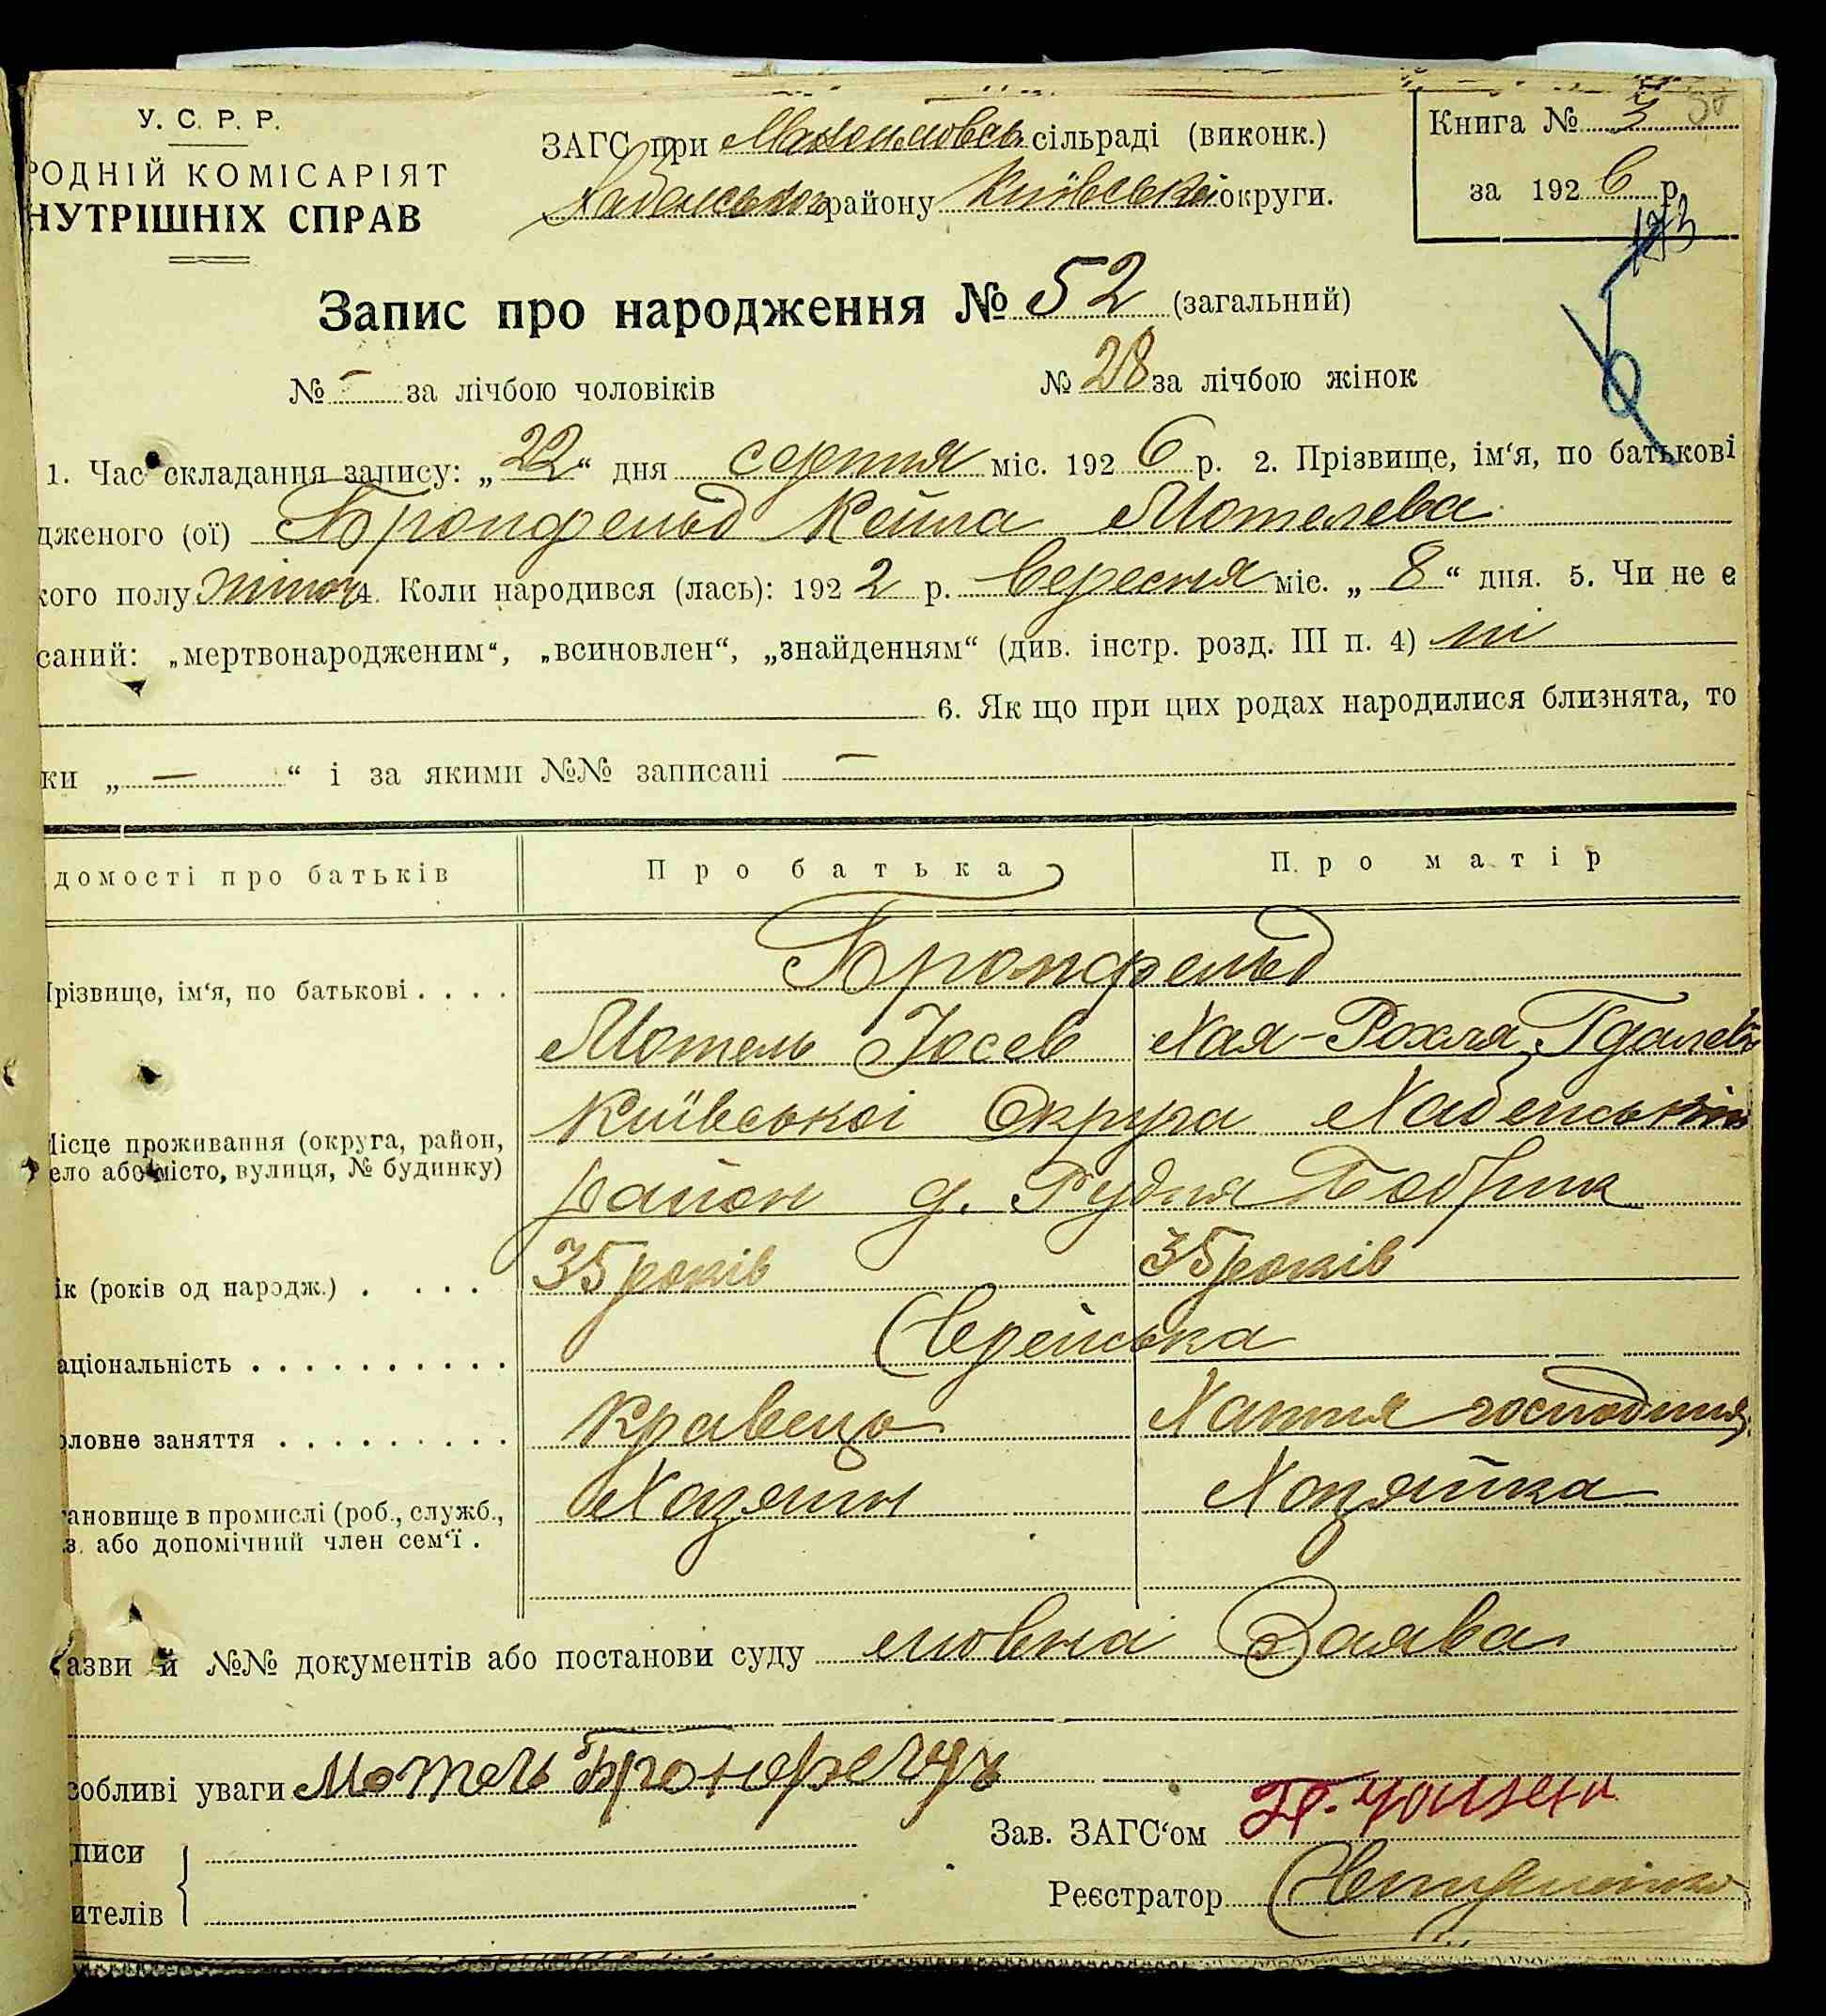 У. С. Р. Р.
РОДНІЙ КОМІСАРІЯТ
НУТРІШНІХ СПРАВ
ЗАГС при сільраді (виконк.)
району Київської округи.
Книга № 3
за 1926 р.
Запис про народження № 52 (загальний)
№ – за лічбою чоловіків № 28 за лічбою жінок
1. Час складання запису: „22“ дня серпня міс. 1926 р. 2. Прізвище, ім‘я, по батькові
дженого (ої) Бронфельд Кейла Мотелева
кого полу жіноч. 4. Коли народився (лась): 1922 р. вересня міс. „8“ дня. 5. Чи не є
саний: „мертвонародженим“, „всиновлен“, „знайденням“ (див. інстр. розд. III п. 4) ні
6. Як що при цих родах народилися близнята, то
ки „—“ і за якими №№ записані —
домості про батьків Про батька Про матір
Бронфельд
різвище, ім‘я, по батькові . . . .
Мотель Йосев Хая-Рохля Гдалевн
Київської Округа Хабенський
Місце проживання (округа, район,
ело або місто, вулиця, № будинку)
район д. Рудня Бобрик
ік (років од народж.) . . . . 35 років 35 років
аціональність . . . . . . . . . . Єврейська
оловне заняття . . . . . . . . . Кравець Хатня господиня.
ановище в промислі (роб., служб., Хазяїн Хазяйка
з. або допомічний член сем‘ї .
азви й №№ документів або постанови суду мовна Заява
собливі уваги Мотель Бронфельд
Зав. ЗАГС‘ом
писи
ителів
Реєстратор